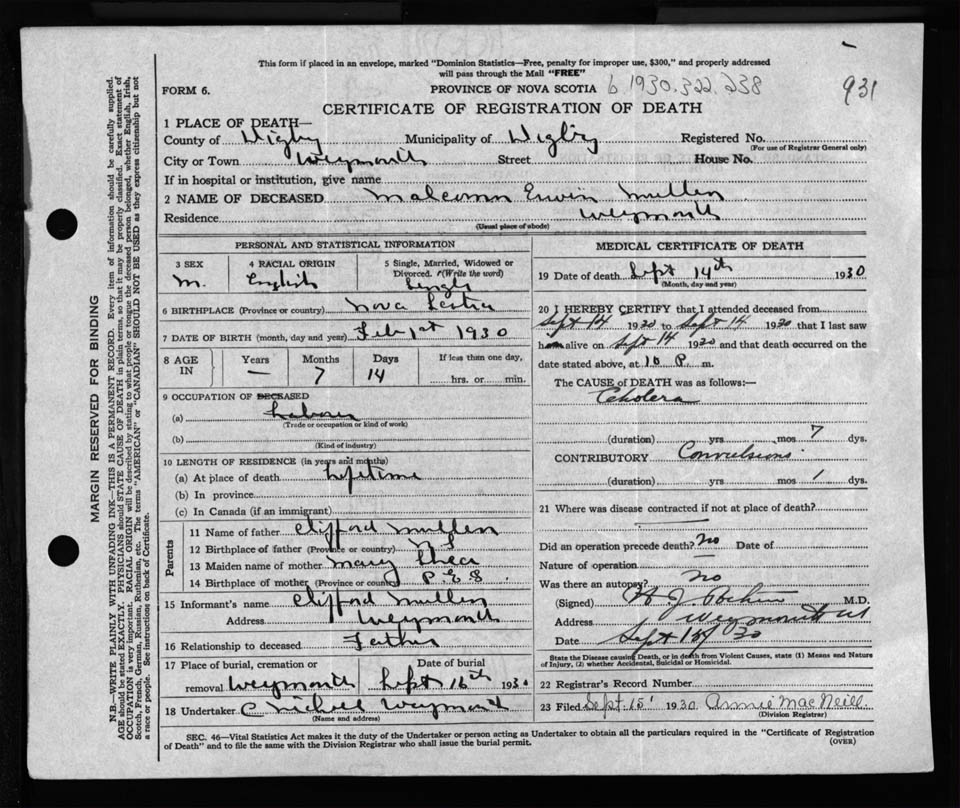 This form if placed in an envelope, marked "Dominion Statistics—Free, penalty for improper use, $300," and properly addressed
will pass through the Mail "FREE"
931
FORM 6.
PROVINCE OF NOVA SCOTIA 6.1930.322.238
CERTIFICATE OF REGISTRATION OF DEATH
1 PLACE OF DEATH—
County of Digby Municipality of Digby Registered No.
(For use of Registrar General only)
City or Town Weymouth Street House No.
If in hospital or institution, give name
2 NAME OF DECEASED Malcomn Erwin Mullen
Residence Weymouth
(Usual place of abode)
PERSONAL AND STATISTICAL INFORMATION
3 SEX 4 RACIAL ORIGIN 5 Single, Married, Widowed or
Divorced. (Write the word)
M. English Single
6 BIRTHPLACE (Province or country) Nova Scotia
7 DATE OF BIRTH (month, day and year) Feb 1st 1930
8 AGE IN Years Months Days If less than one day,
— 7 14 hrs. or min.
9 OCCUPATION OF DECEASED
(a)
(Trade or occupation or kind of work)
(b)
(Kind of industry)
10 LENGTH OF RESIDENCE (in years and months)
(a) At place of death lifetime
(b) In province
(c) In Canada (if an immigrant)
Parents
11 Name of father Clifford Mullen
12 Birthplace of father (Province or country) N S
13 Maiden name of mother Mary Shea
14 Birthplace of mother (Province or country) P.E.I.
15 Informant's name Clifford Mullen
Address Weymouth
16 Relationship to deceased Father
17 Place of burial, cremation or Date of burial
removal Weymouth Sept 16th 1930
18 Undertaker C Nichols Weymouth
(Name and address)
MEDICAL CERTIFICATE OF DEATH
19 Date of death Sept 14th 1930
(Month, day and year)
20 I HEREBY CERTIFY that I attended deceased from
Sept 14 1930 to Sept 14 1930 that I last saw
h alive on Sept 14 1930 and that death occurred on the
date stated above, at 10 P. m.
The CAUSE of DEATH was as follows:—
Cholera
(duration) yrs mos 7 dys.
CONTRIBUTORY Convulsions
(duration) yrs mos 1 dys.
21 Where was disease contracted if not at place of death?
Did an operation precede death? no Date of
Nature of operation
Was there an autopsy? no
(Signed) M.D.
Address Weymouth
Date Sept 30
State the Disease causing Death, or in death from Violent Causes, state (1) Means and Nature
of Injury, (2) whether Accidental, Suicidal or Homicidal.
22 Registrar's Record Number
23 Filed Sept. 15 1930 Annie MacNeill
(Division Registrar)
SEC. 46—Vital Statistics Act makes it the duty of the Undertaker or person acting as Undertaker to obtain all the particulars required in the "Certificate of Registration
of Death" and to file the same with the Division Registrar who shall issue the burial permit.
(OVER)
MARGIN RESERVED FOR BINDING
N.B.—WRITE PLAINLY WITH UNFADING INK—THIS IS A PERMANENT RECORD. Every item of information should be carefully supplied.
AGE should be stated EXACTLY. PHYSICIANS should STATE CAUSE OF DEATH in plain terms, so that it may be properly classified. Exact statement of
OCCUPATION is very important. RACIAL ORIGIN will be described by stating to what people or tongue the deceased person belonged, whether English, Irish,
Scotch, French, German, Russian, Ruthenian, etc. The terms "AMERICAN" or "CANADIAN" SHOULD NOT BE USED as they express citizenship but not
a race or people. See instructions on back of Certificate.